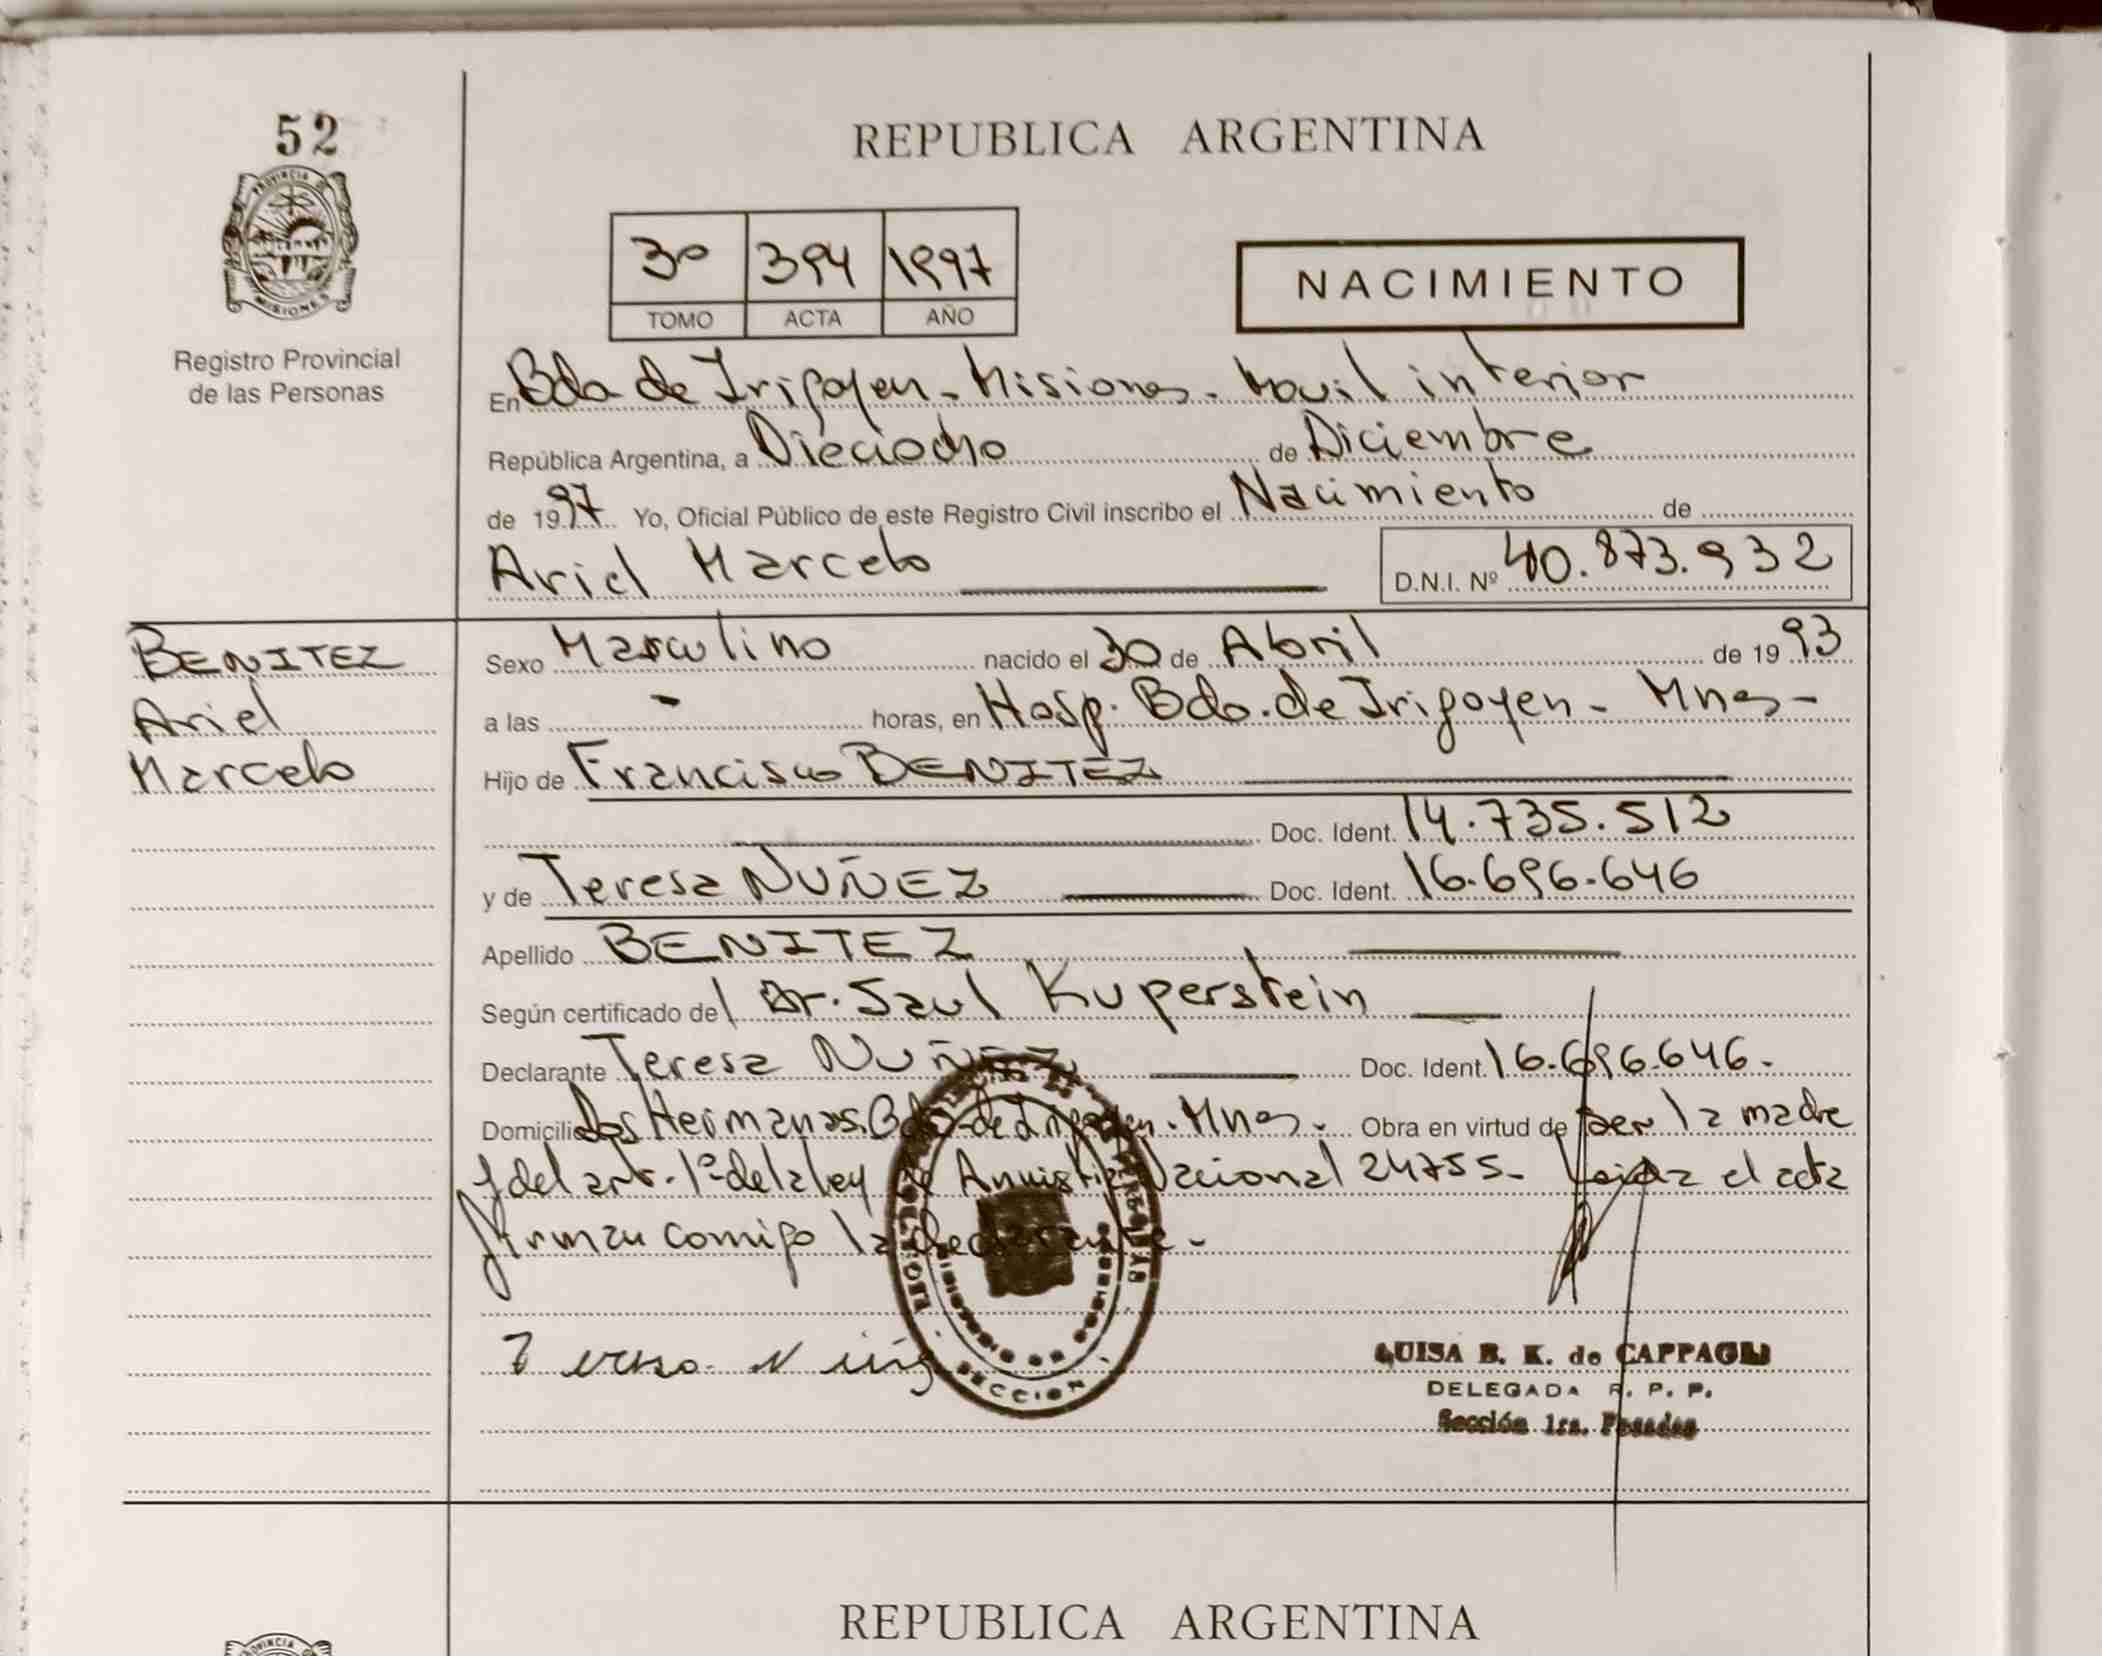 52
REPUBLICA ARGENTINA
PROVINCIA DE
MISIONES
3º 394 1997
TOMO ACTA AÑO
NACIMIENTO
Registro Provincial
de las Personas
En Bdo de Irigoyen - Misiones - Movil interior
República Argentina, a Dieciocho de Diciembre
de 1997 Yo, Oficial Público de este Registro Civil inscribo el Nacimiento de
Ariel Marcelo D.N.I. Nº 40.873.932
BENITEZ
Ariel
Marcelo
Sexo Masculino nacido el 30 de Abril de 1993
a las - horas, en Hosp. Bdo. de Irigoyen - Mnes -
Hijo de Francisco BENITEZ
Doc. Ident. 14.735.512
y de Teresa NUÑEZ Doc. Ident. 16.696.646
Apellido BENITEZ
Según certificado del Dr. Saul Kuperstein
Declarante Teresa NUÑEZ Doc. Ident. 16.696.646.-
Domicilio Dos Hermanas. Bdo de Irigoyen. Mnes. - Obra en virtud de ser la madre
y del art. 1º de la ley de Amnistia Nacional 24755 - Leida el acta
firman comigo la declarante -
LUISA B. K. de CAPPAGLI
DELEGADA R. P. P.
Sección 1ra. Posadas
SECCION
REPUBLICA ARGENTINA
PROVINCIA